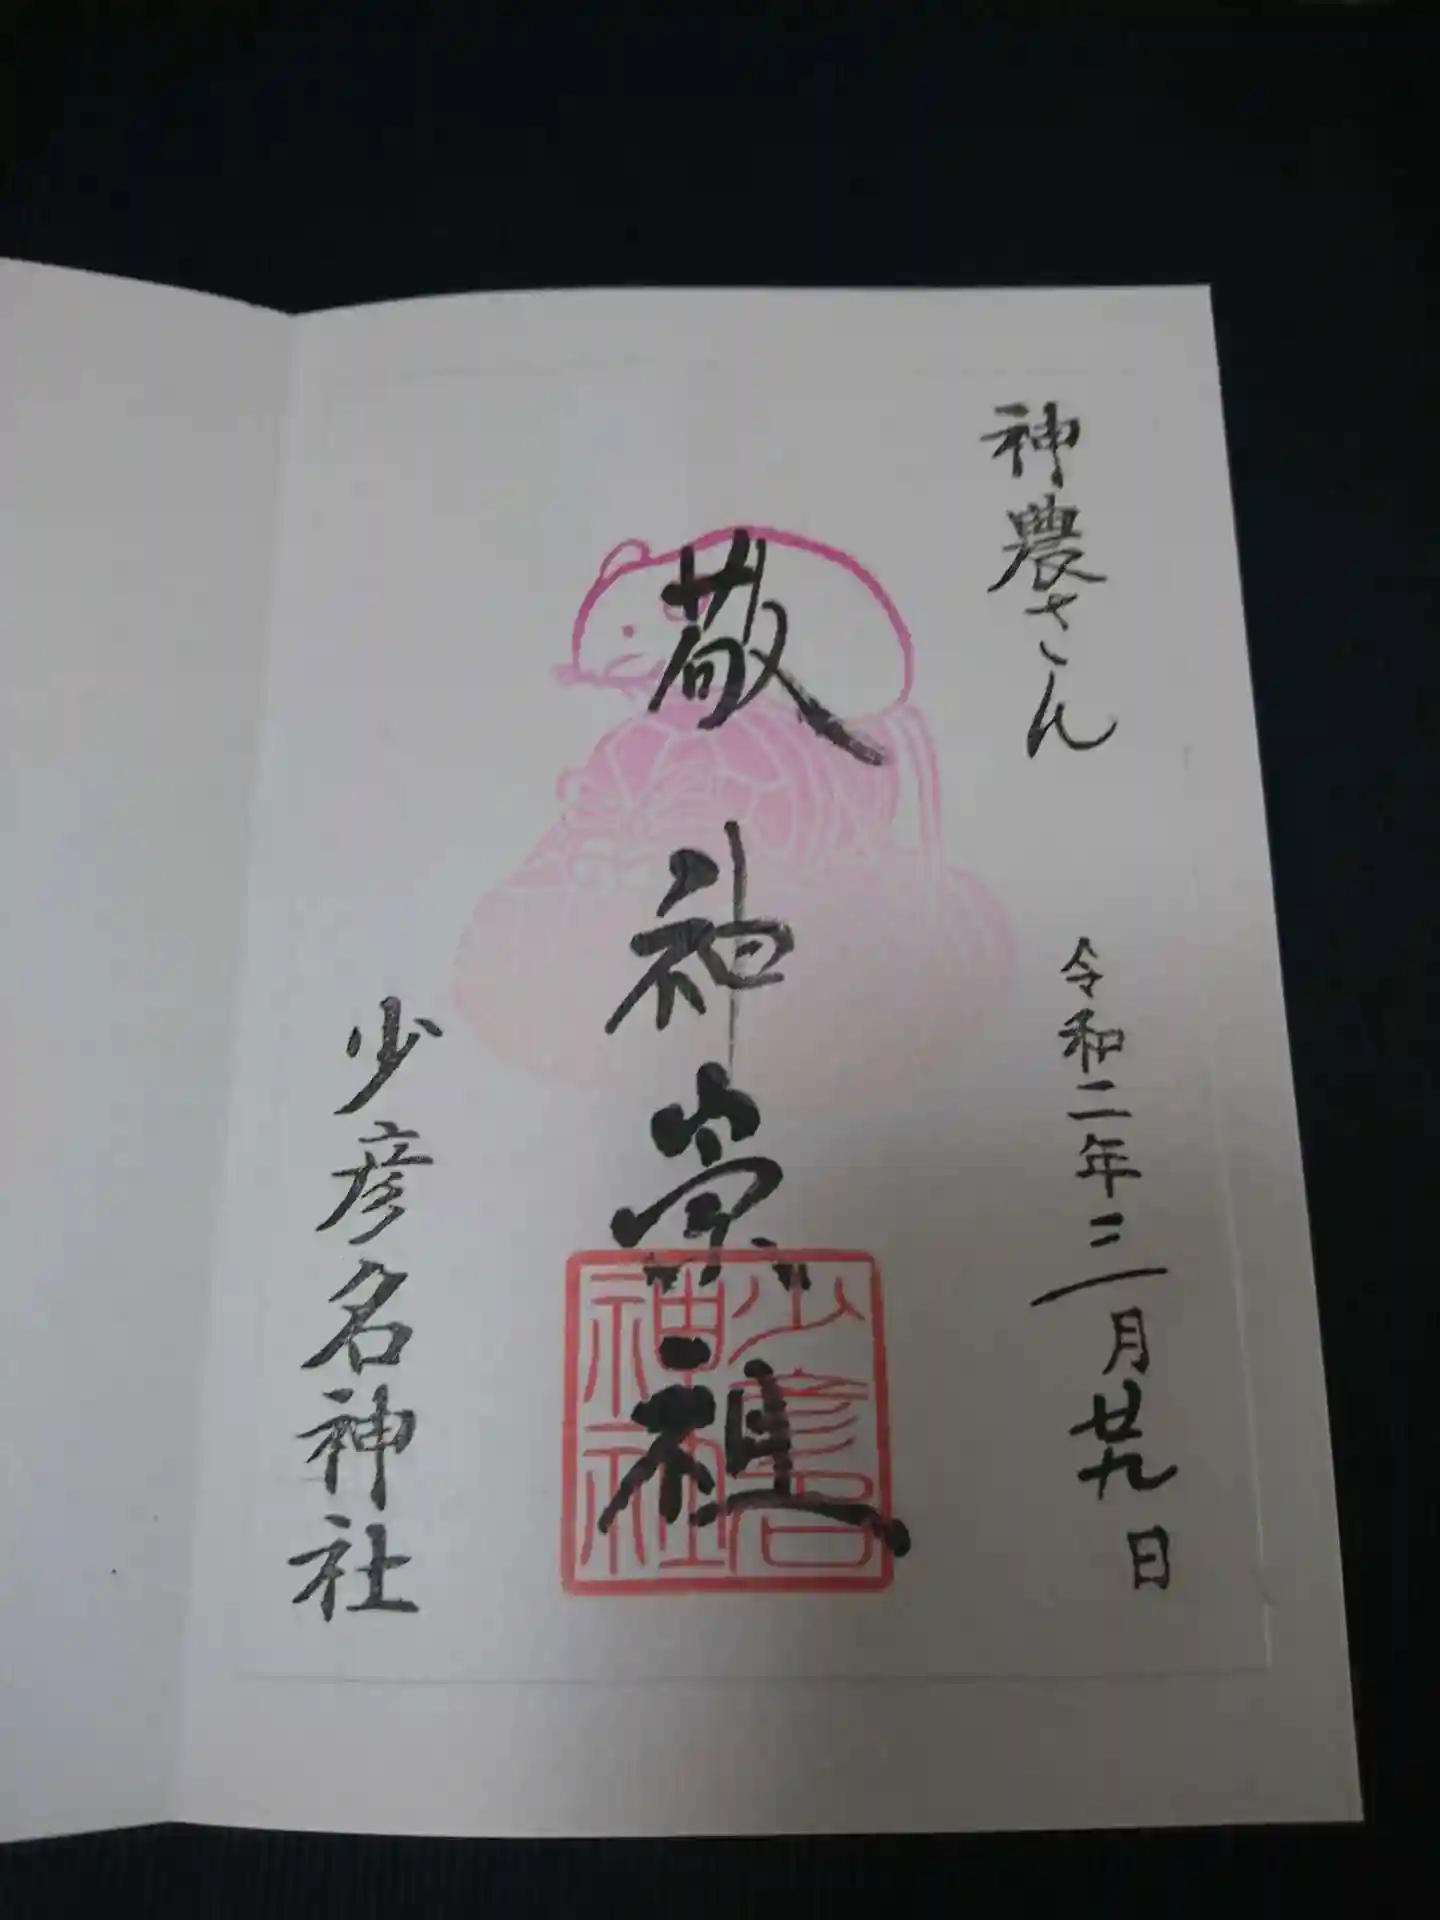 神農さん
令和二年三月廿九日
敬神崇祖
少彦名神社
少彦名
神社